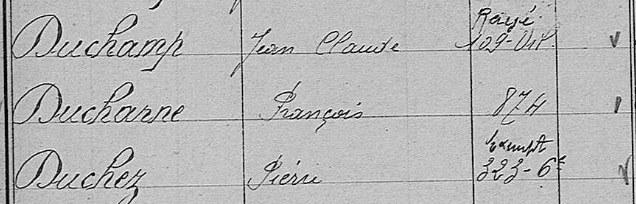 Rayé
Duchamp Jean Claude 109-
Ducharne François 874
Exempt
Duchez Pierre 323-6e